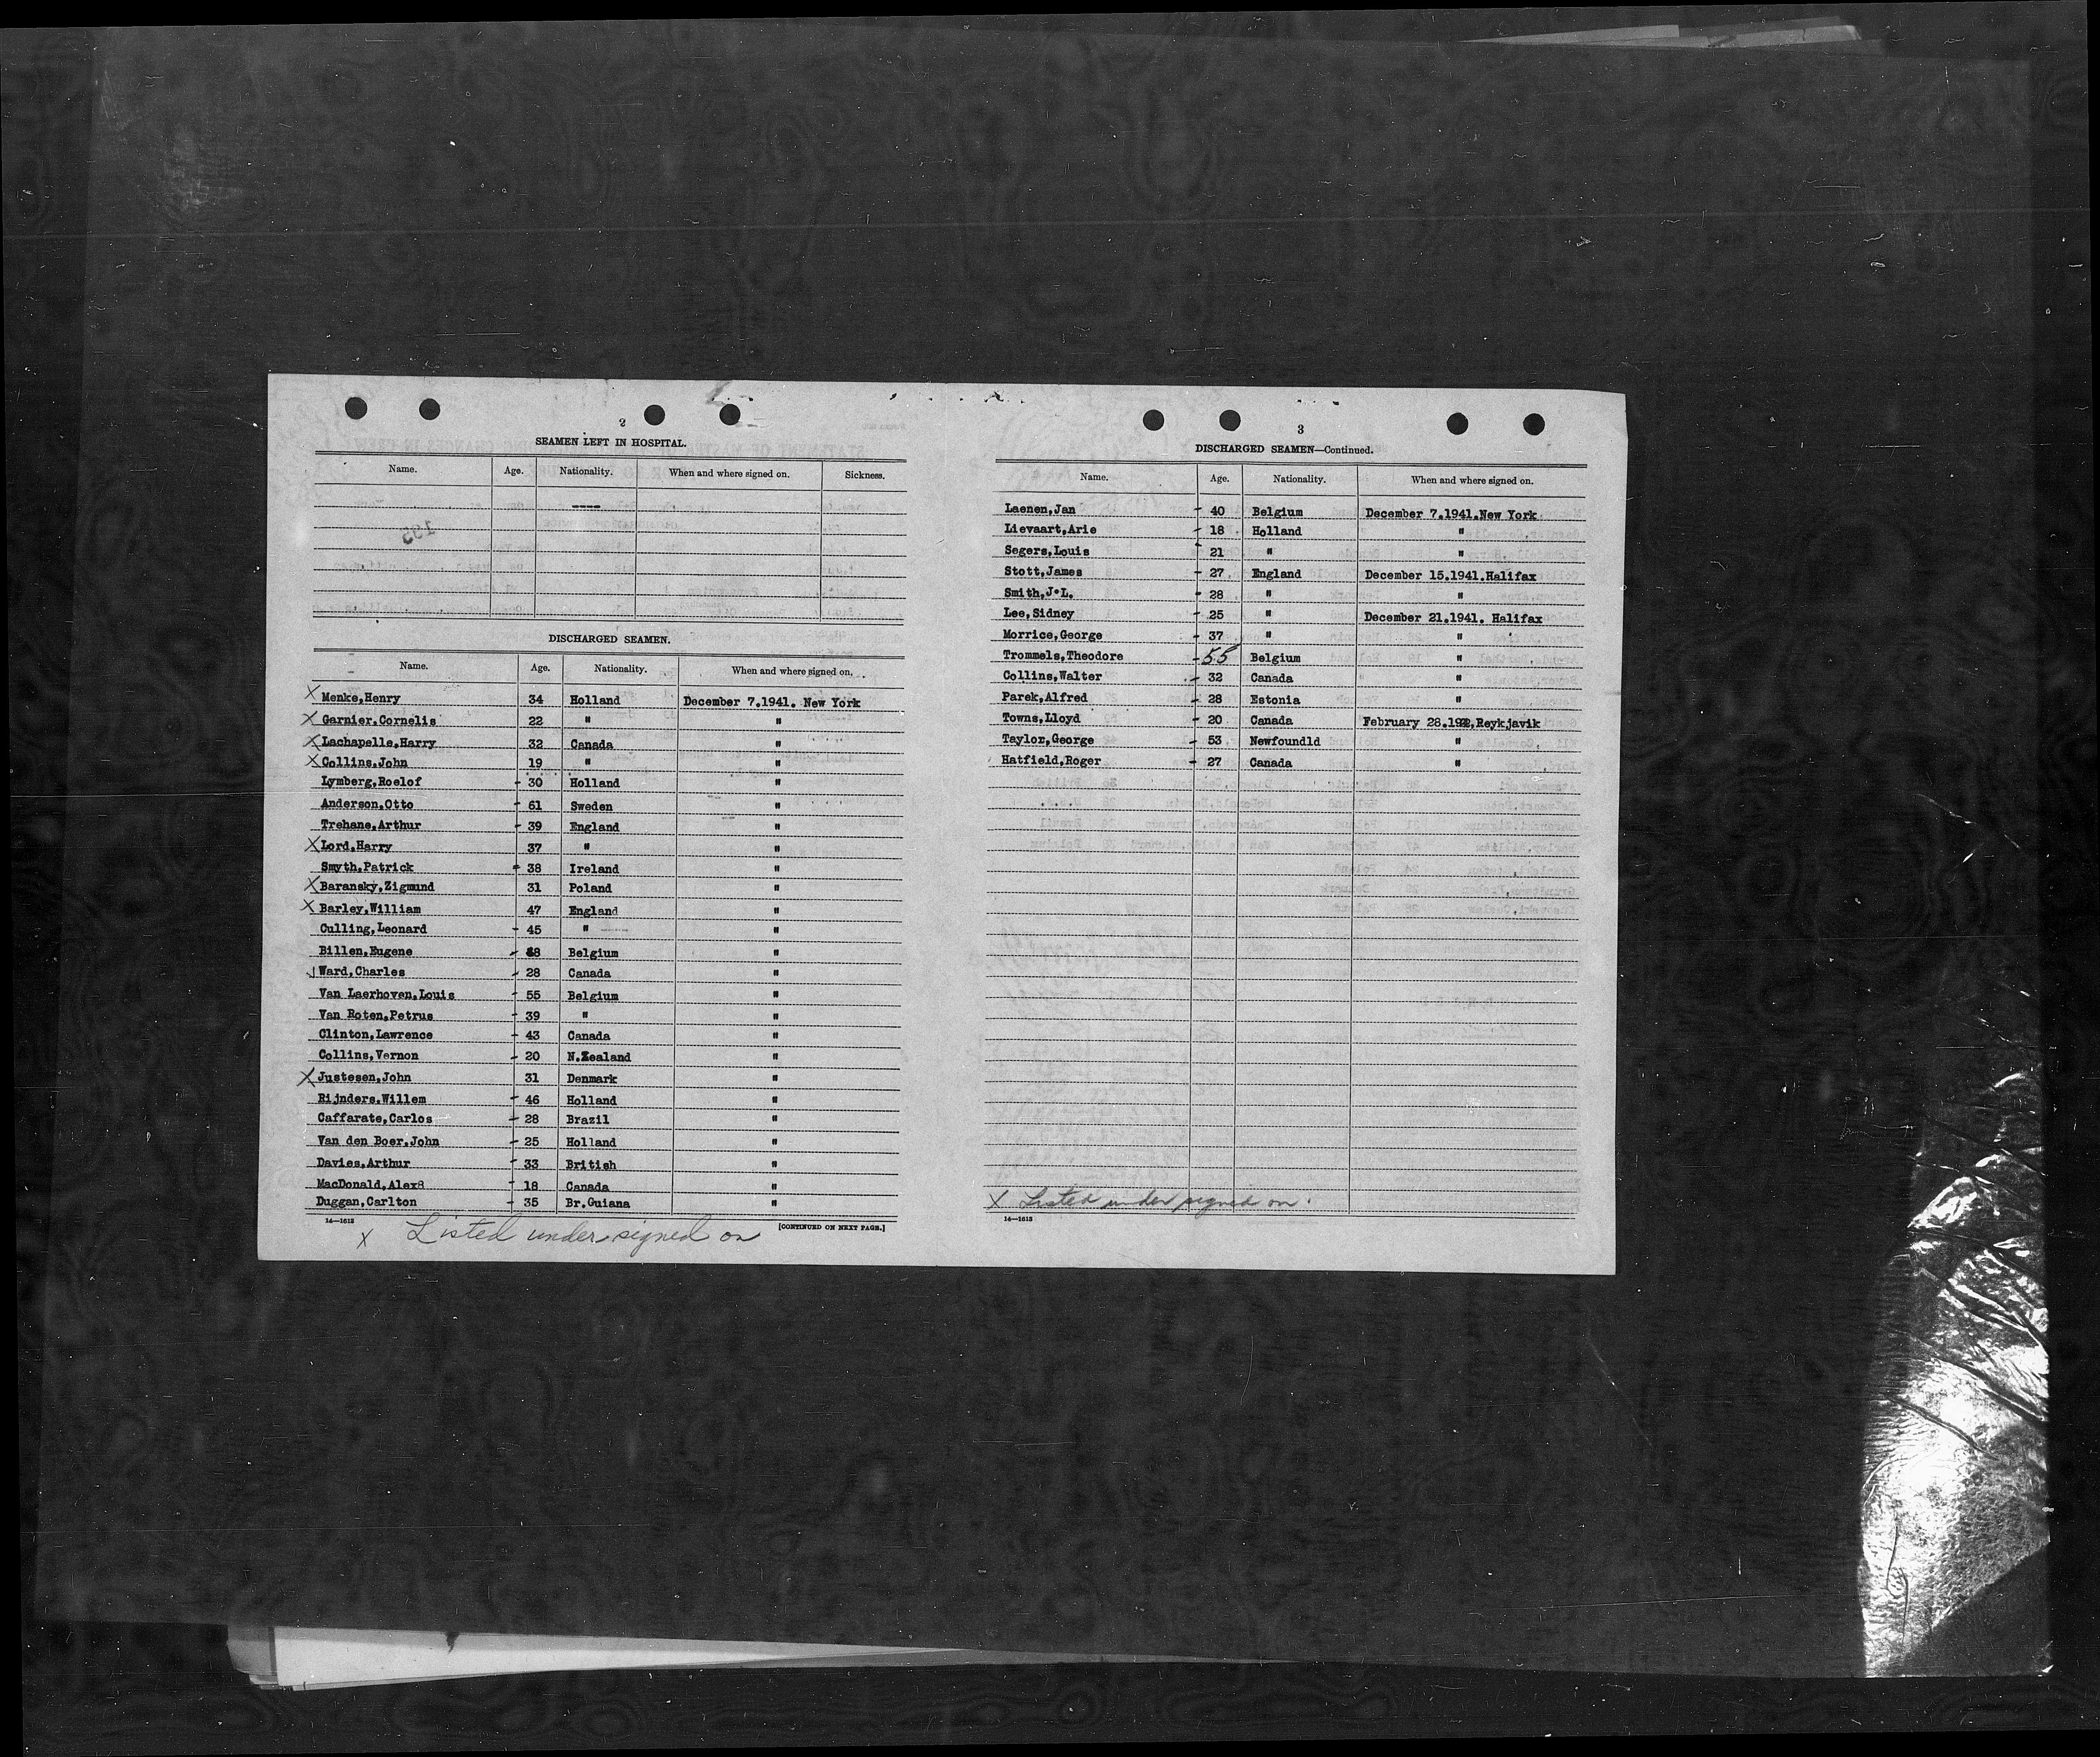 2
SEAMEN LEFT IN HOSPITAL.
Name. Age. Nationality. When and where signed on. Sickness.
----
195
DISCHARGED SEAMEN.
Name. Age. Nationality. When and where signed on.
X Menke,Henry 34 Holland December 7.1941. New York
X Garnier.Cornelis 22 " "
X Lachapelle,Harry 32 Canada "
X Collins.John 19 " "
Lymberg,Roelof - 30 Holland "
Anderson,Otto - 61 Sweden "
Trehane,Arthur - 39 England "
X Lord,Harry 37 " "
Smyth,Patrick - 38 Ireland "
X Baransky,Zigmund 31 Poland "
X Barley,William 47 England "
Culling,Leonard - 45 " "
Billen,Eugene - 48 Belgium "
Ward,Charles - 28 Canada "
Van Laerhoven,Louis - 55 Belgium "
Van Roten,Petrus - 39 " "
Clinton,Lawrence - 43 Canada "
Collins,Vernon - 20 N.Zealand "
X Justesen,John 31 Denmark "
Rijnders.Willem - 46 Holland "
Caffarate,Carlos - 28 Brazil "
Van den Boer.John - 25 Holland "
Davies,Arthur - 33 British "
MacDonald,Alex8 - 18 Canada "
Duggan,Carlton - 35 Br.Guiana "
14—1613 [CONTINUED ON NEXT PAGE.]
X Listed under signed on
3
DISCHARGED SEAMEN—Continued.
Name. Age. Nationality. When and where signed on.
Laenen,Jan - 40 Belgium December 7.1941.New York
Lievaart,Arie - 18 Holland "
Segers,Louis - 21 " "
Stott,James - 27 England December 15.1941.Halifax
Smith,J.L. - 28 " "
Lee,Sidney - 25 " December 21.1941. Halifax
Morrice,George - 37 " "
Trommels,Theodore - 55 Belgium "
Collins,Walter - 32 Canada "
Parek,Alfred - 28 Estonia "
Towns,Lloyd - 20 Canada February 28.1942,Reykjavik
Taylor,George - 53 Newfoundld "
Hatfield,Roger - 27 Canada "
X Listed under signed on.
14—1613